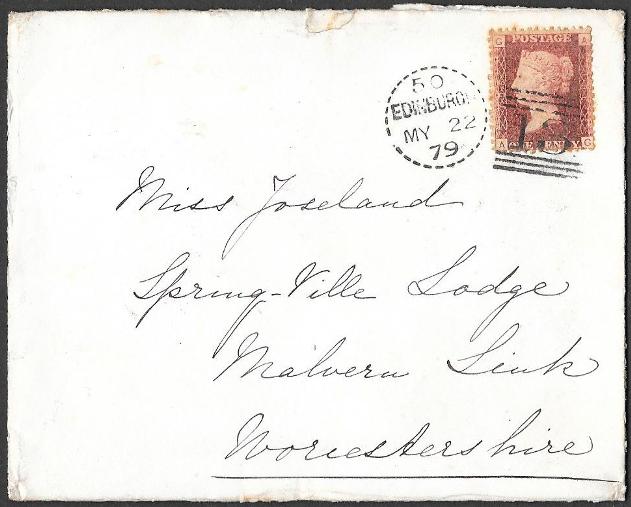 G POSTAGE A
50
EDINBURGH
MY 22
79
A ONE PENNY G
Miss Joseland
Spring-Ville Lodge
Malvern Link
Worcestershire